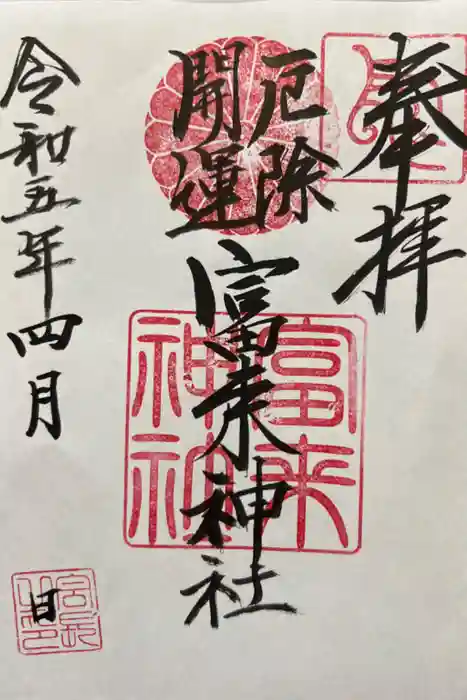 奉拝
厄除
開運
富来神社
富来
神社
令和五年四月
日